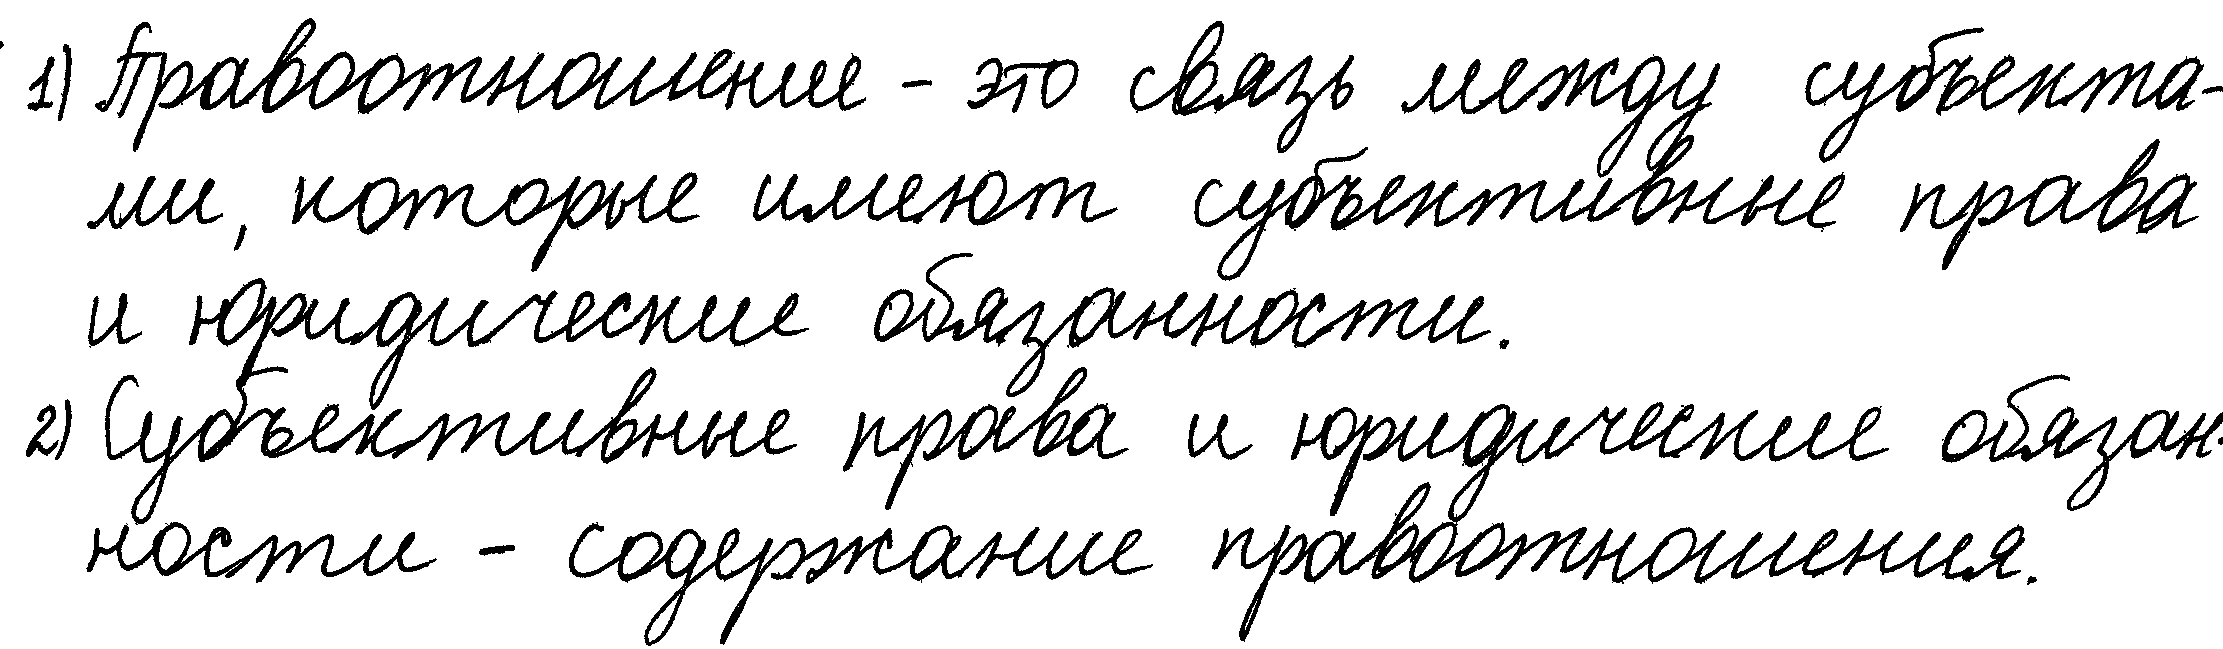 1) Правоотношение - это связь между субъекта-
ми, которые имеют субъективные права
и юридические обязанности.
2) Субъективные права и юридические обязан-
ности - содержание правоотношения.